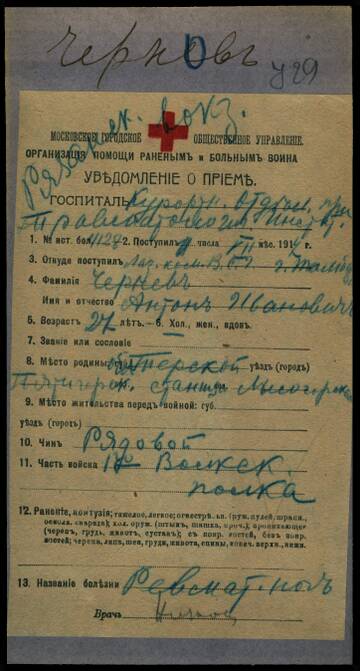 Черновъ
Рязанск. вокз.
МОСКОВСКОЕ ГОРОДСКОЕ ОБЩЕСТВЕННОЕ УПРАВЛЕНІЕ.
ОРГАНИЗАЦІЯ ПОМОЩИ РАНЕНЫМЪ и БОЛЬНЫМЪ ВОИНА
УВѢДОМЛЕНІЕ О ПРІЕМѢ.
ГОСПИТАЛЬ Курортн. отдѣл. при
Травматологич. Инст.
1. № ист. бол. 2. Поступилъ числа VII мѣс. 191
3. Откуда поступилъ
4. Фамилія Черневъ
Имя и отчество Антонъ Ивановичъ
5. Возрастъ 27 лѣтъ. — 6. Хол., жен., вдов.
7. Званіе или сословіе
8. Мѣсто родины: Терской уѣздъ (городъ)
Пятигор. станица Лысогорск
9. Мѣсто жительства передъ войной: губ.
уѣздъ (городъ)
10. Чинъ Рядовой
11. Часть войска Волжск.
полка
12. Раненіе, контузія; тяжелое, легкое; огнестр. ор. (пул., шрапн.,
оскол. снаряда); хол. оруж. (штыкъ, шашка, проч.); проникающее
(черепъ, грудь, животъ, суставъ); съ повр. костей, безъ повр.
костей; черепа, лица, шеи, груди, живота, спины, конеч. верхн., нижн.
13. Названіе болѣзни Ревмат.
Врачъ